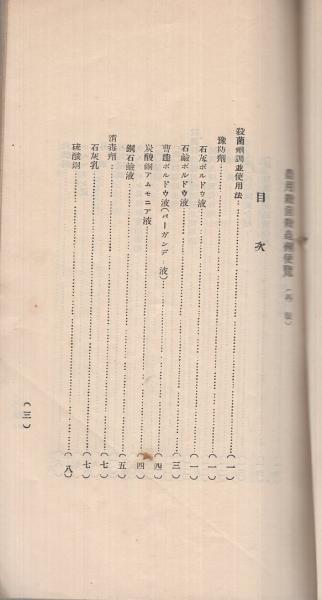 目次
殺菌劑調並使用法……(一)
豫防劑……(一)
石灰ボルドウ液……(一)
石鹼ボルドウ液……(三)
曹達ボルドウ液(バーガンデー液)……(四)
炭酸銅アムモニア液……(四)
銅石鹼液……(五)
消毒劑……(七)
石灰乳……(七)
硫酸銅……(八)
(三)